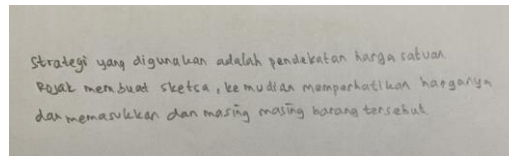 Strategi yang digunakan adalah pendekatan harga satuan.
Rojak membuat sketsa, kemudian memperhatikan harganya
dan memasukkan dan masing masing barang tersebut